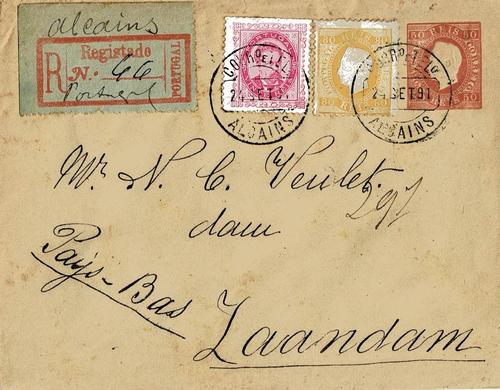 alcains
Registado
R N.º 66
PORTUGAL
Portugal
CORREIO E TEL
24 SET 91
ALCAINS
CORREIO E TEL
24 SET 91
ALCAINS
50 REIS 50
Mr. N. C. Venlet.
291
dam
Pays-Bas
Zaandam